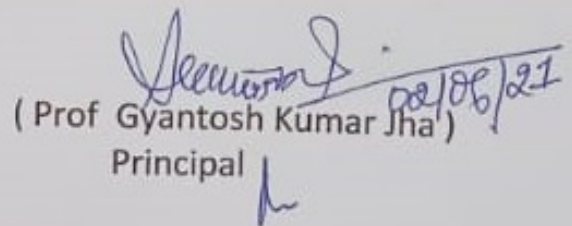 02/06/21
( Prof Gyantosh Kumar Jha )
Principal